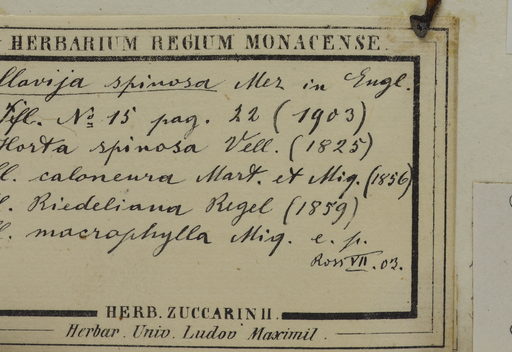 HERBARIUM REGIUM MONACENSE.
Clavija spinosa Mez in Engl.
Pfl. No 15 pag. 22 (1903)
Horta spinosa Vell. (1825)
Cl. caloneura Mart. et Miq. (1856)
Cl. Riedeliana Regel (1859)
Cl. macrophylla Miq. e. p.
Ross VII. 03.
HERB. ZUCCARINII.
Herbar. Univ. Ludov Maximil.